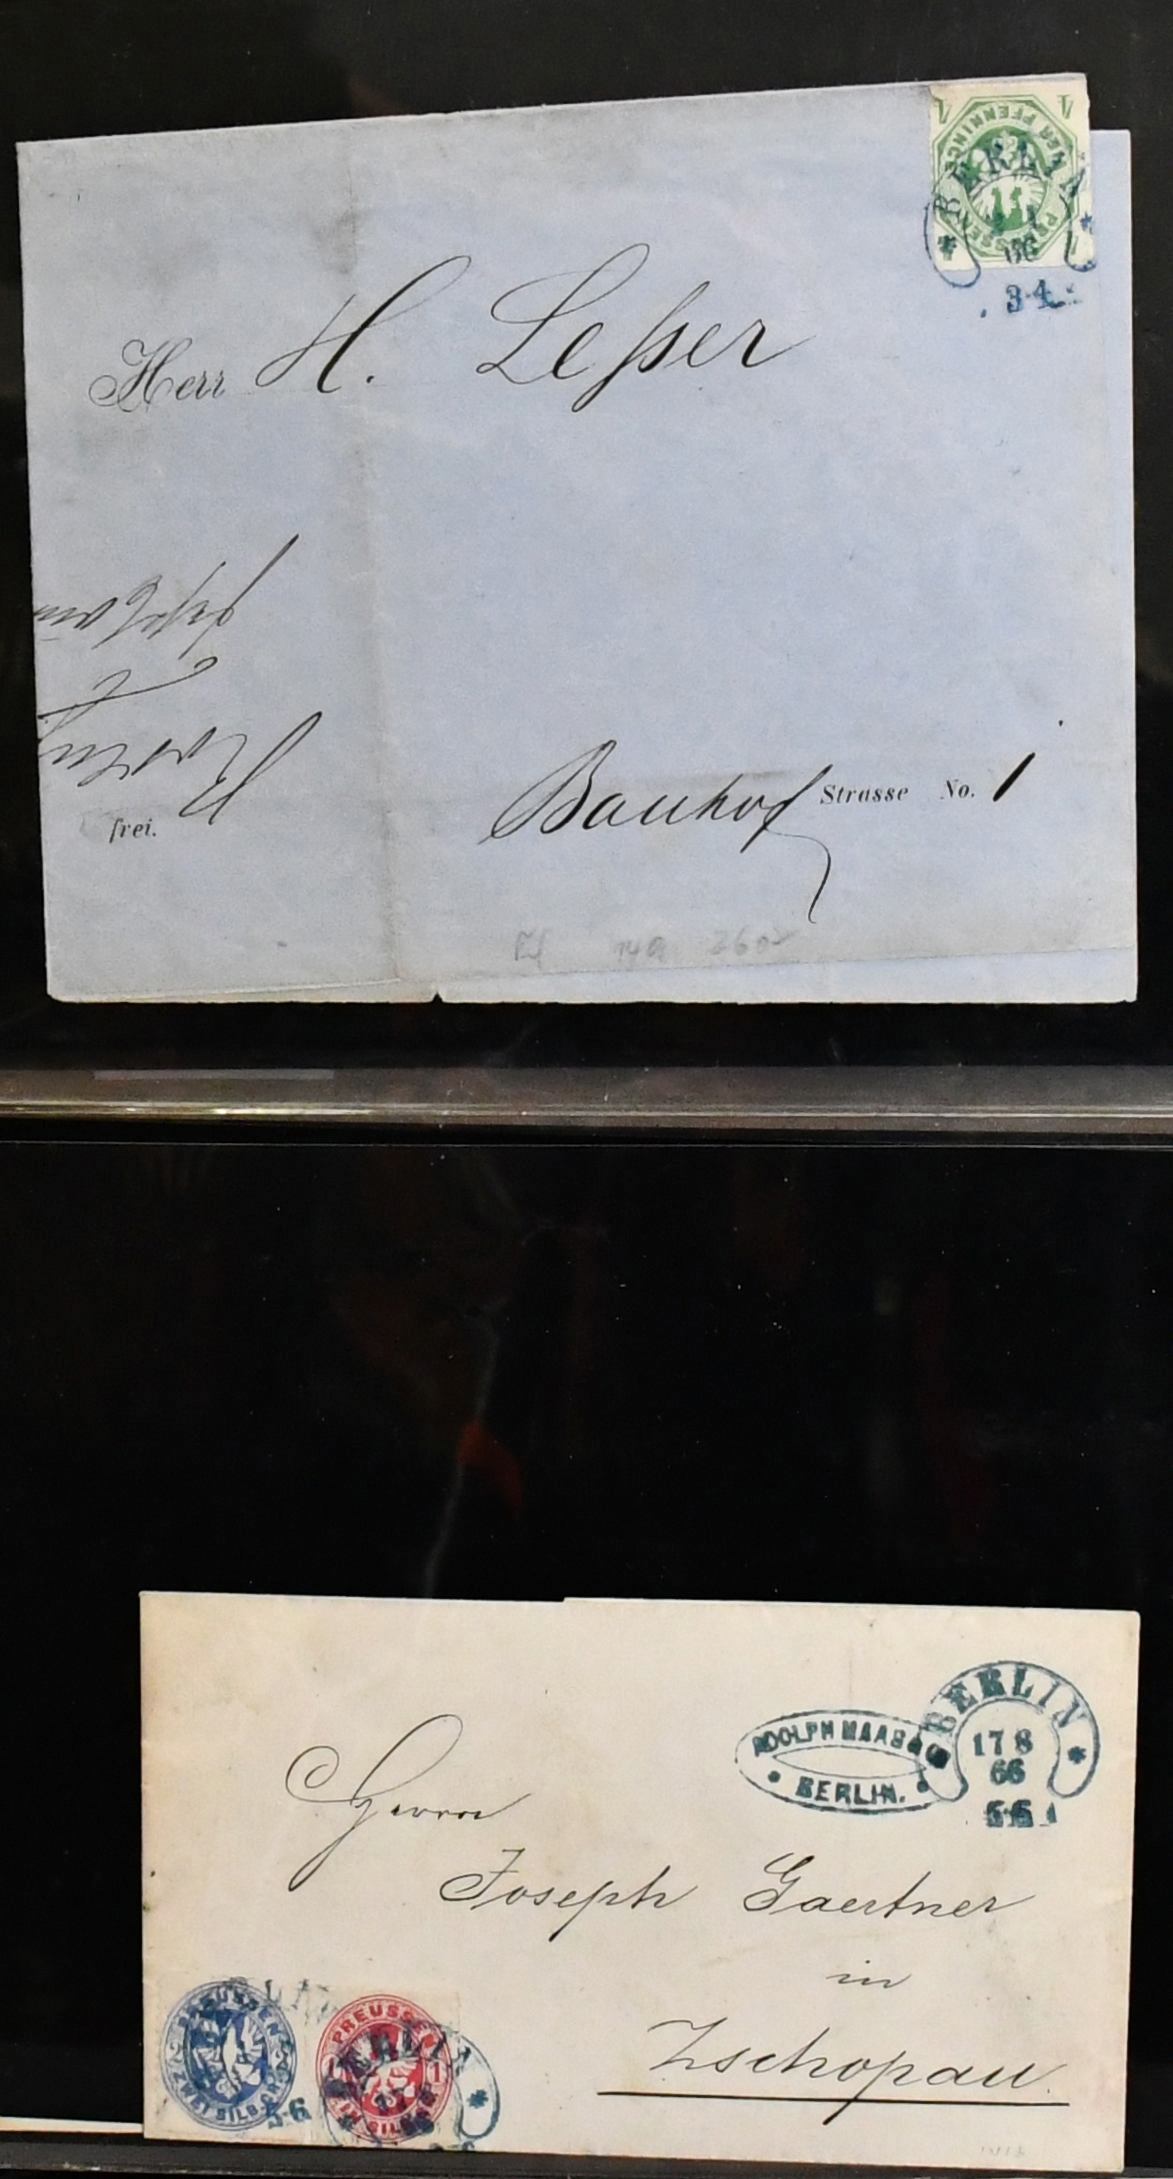 PREUSSEN VIER PFENNINGE
BERLIN
66
3-4
Herr H. Leſser
frei.
Bauhof Strasse No. 1
14a 260
ADOLPH MAAS & Co
BERLIN.
BERLIN
17 8
66
5-6
Herrn
Joseph Gaertner
in
Zschopau
PREUSSEN ZWEI SILB.GR.
5-6
PREUSSEN 1 EIN SILBGR
BERLIN